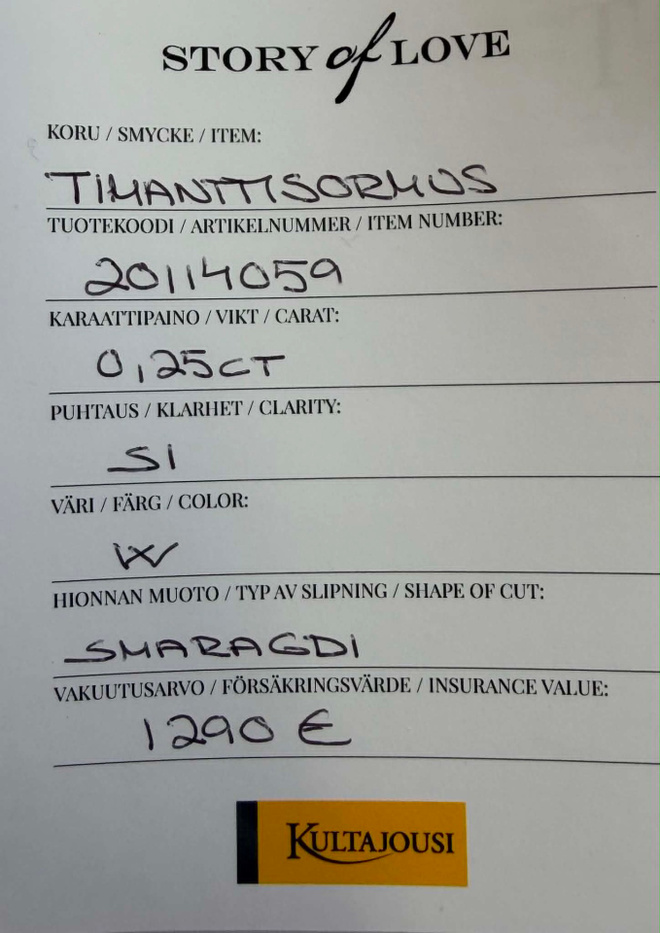 STORY of LOVE
KORU / SMYCKE / ITEM:
TIMANTTISORMUS
TUOTEKOODI / ARTIKELNUMMER / ITEM NUMBER:
20114059
KARAATTIPAINO / VIKT / CARAT:
0,25CT
PUHTAUS / KLARHET / CLARITY:
SI
VÄRI / FÄRG / COLOR:
W
HIONNAN MUOTO / TYP AV SLIPNING / SHAPE OF CUT:
SMARAGDI
VAKUUTUSARVO / FÖRSÄKRINGSVÄRDE / INSURANCE VALUE:
1290 €
KULTAJOUSI